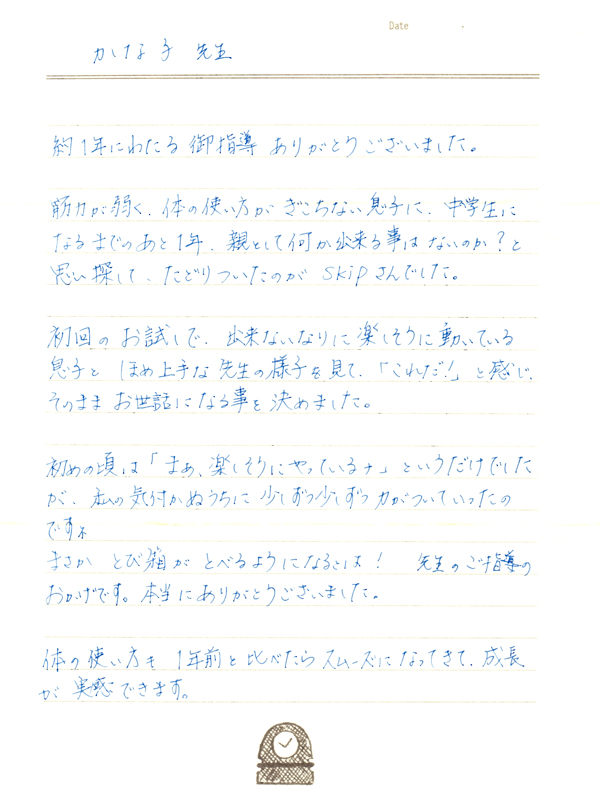 Date
かな子 先生
約1年にわたる御指導 ありがとうございました。
筋力が弱く、体の使い方がぎこちない息子に、中学生に
なるまでのあと1年、親として何か出来る事はないのか?と
思い探して、たどりついたのが skipさんでした。
初回のお試しで、出来ないなりに楽しそうに動いている
息子と ほめ上手な先生の様子を見て、「これだ!」と感じ、
そのまま お世話になる事を決めました。
初めの頃は「まぁ、楽しそうにやっているナ」というだけでした
が、私の気付かぬうちに 少しずつ少しずつ 力がついていったの
ですネ
まさか とび箱が とべるようになるとは! 先生のご指導の
おかげです。本当にありがとうございました。
体の使い方も 1年前と比べたらスムーズになってきて、成長
が 実感できます。